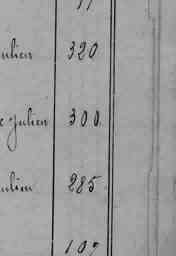 ulien 320
e Julien 300
ulien 285
107